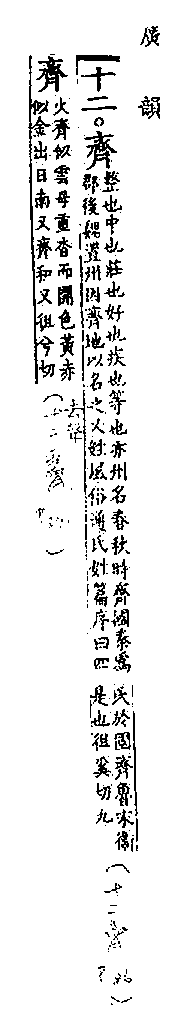 廣韻
十二。齊
整也中也莊也好也疾也等也亦州名春秋時齊國秦爲
郡後魏置州因齊地以名之又姓風俗通氏姓篇序曰四
氏於國齊魯宋衞
是也徂奚切九
齊
火齊似雲母重沓而開色黃赤
似金出日南又齊和又徂兮切
(去聲
十二霽